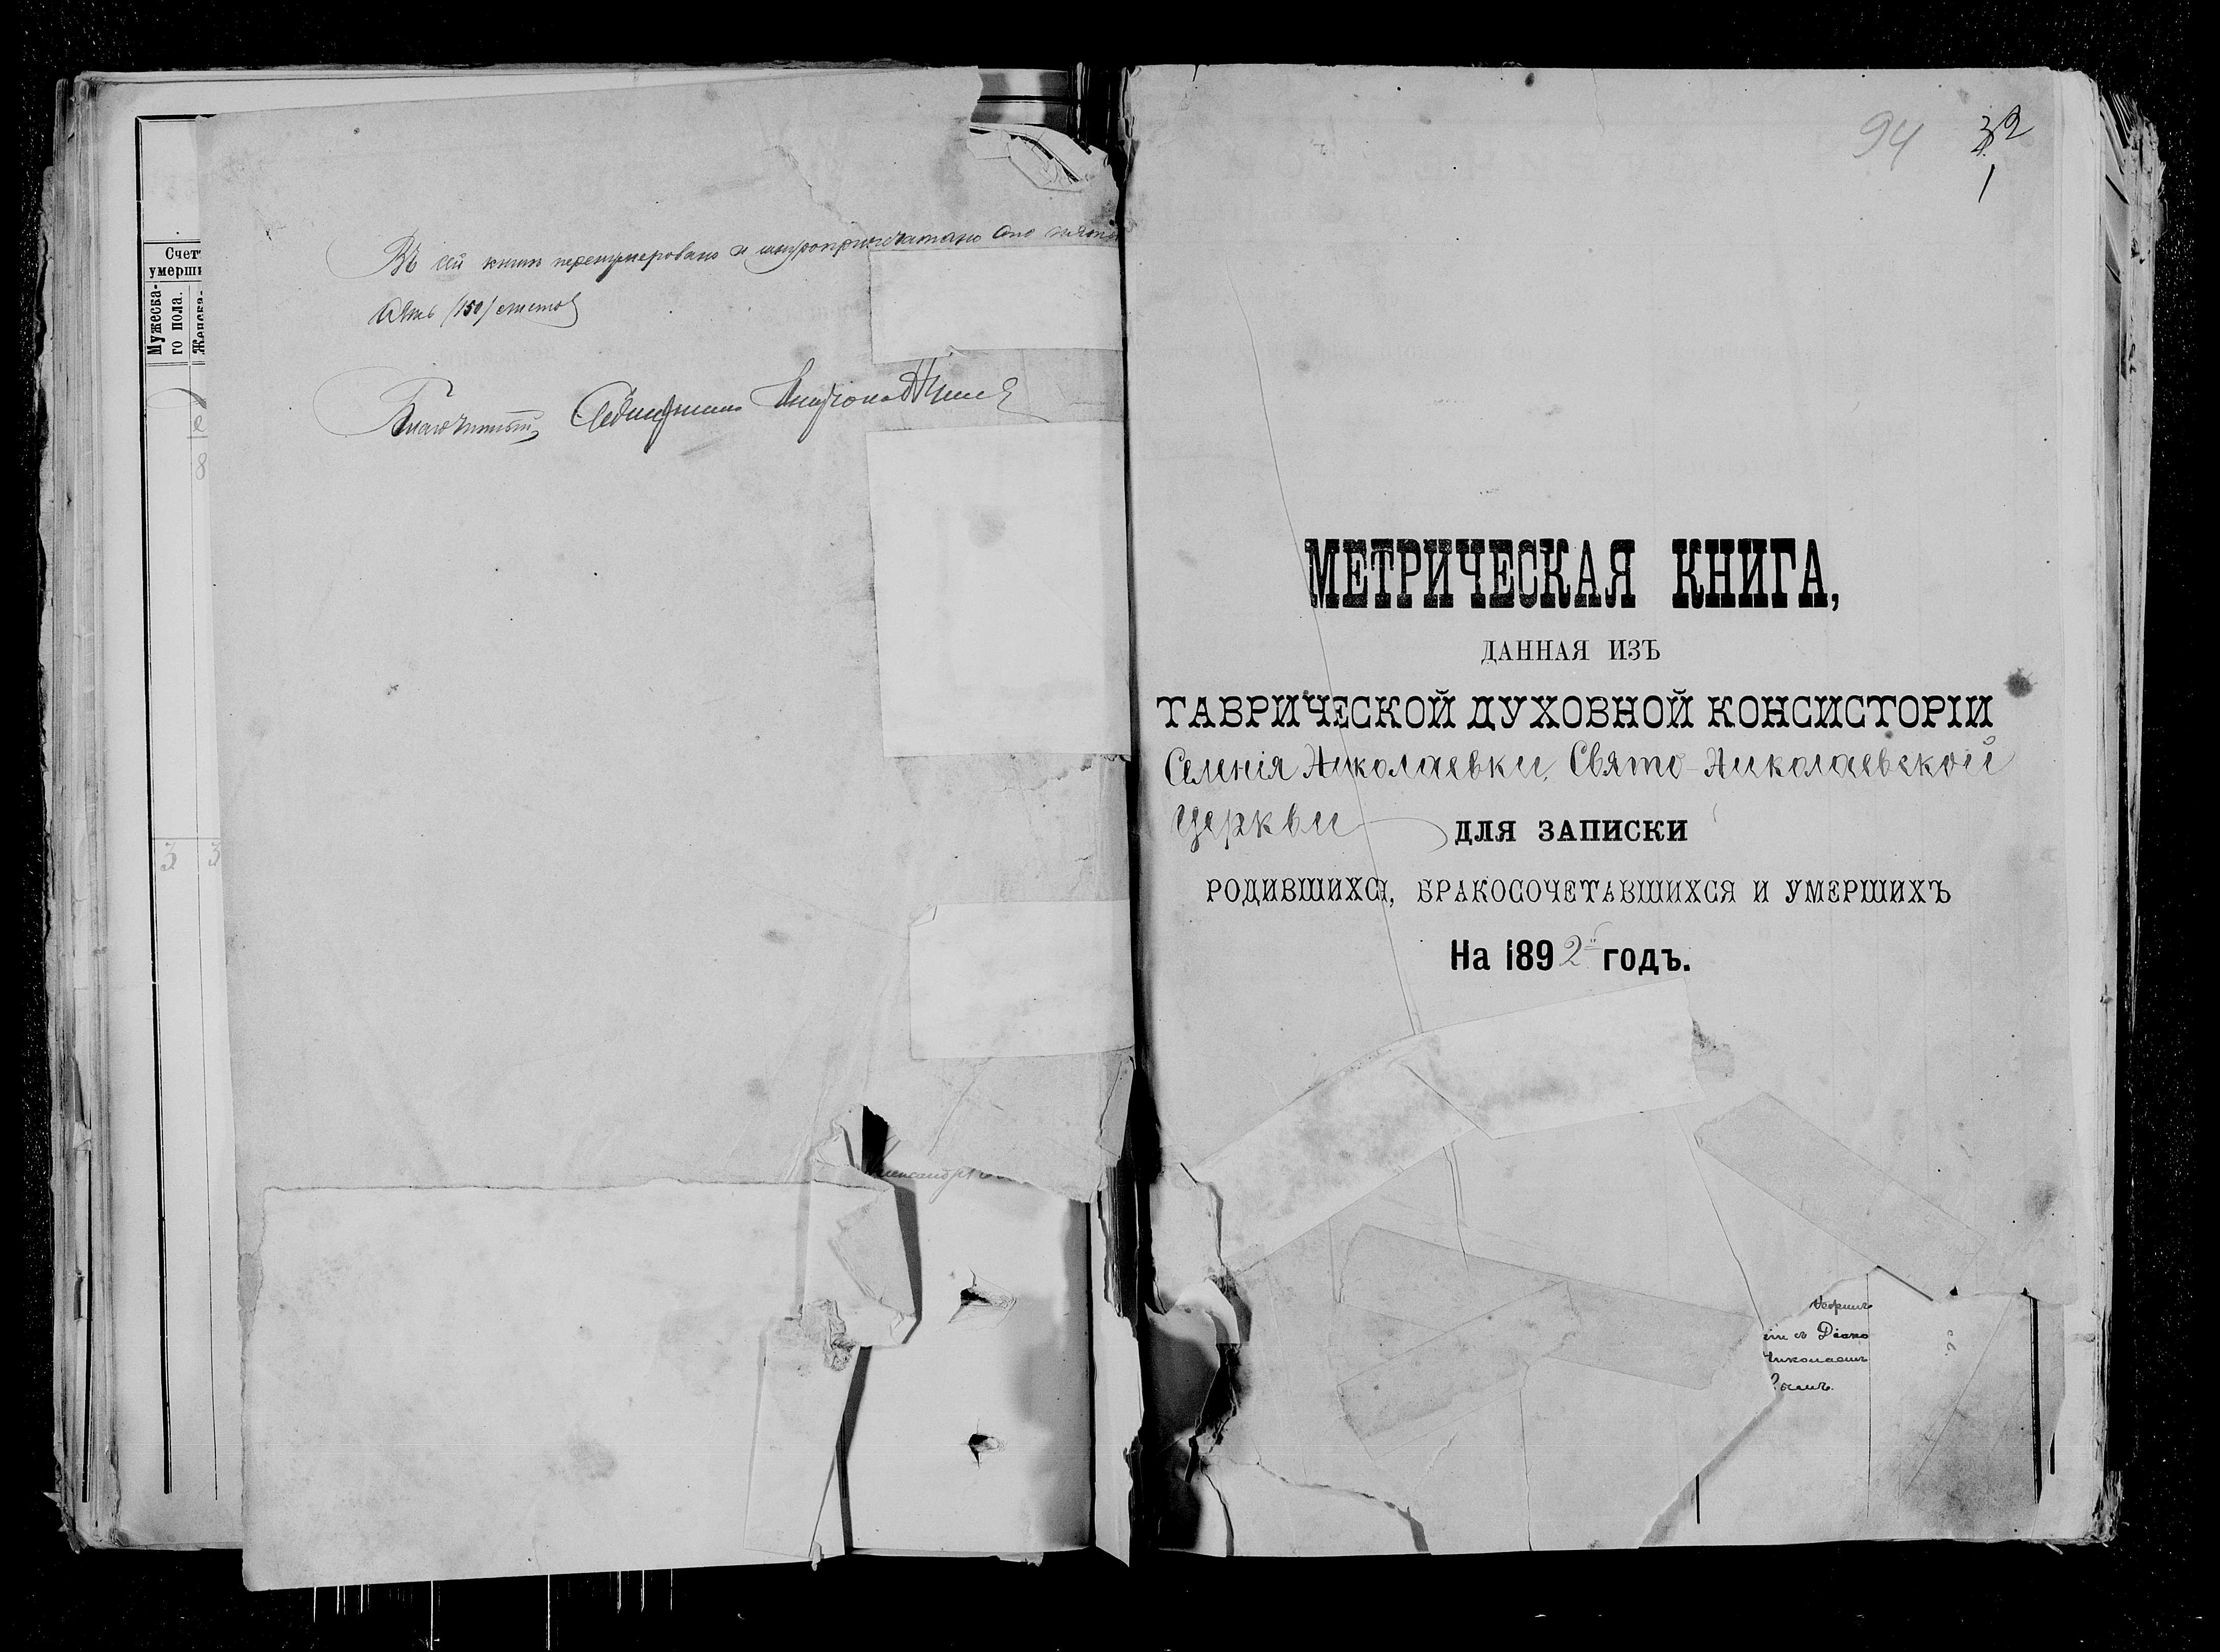 Счет
умерши
Мужеска-
го пола.
Женска-
3 3
8
Въ сей книге перенумеровано и шнуроприпечатано Сто пять
/150/ листов
Благочинный Священник
94 32
1
МЕТРИЧЕСКАЯ КНИГА,
ДАННАЯ ИЗЪ
ТАВРИЧЕСКОЙ ДУХОВНОЙ КОНСИСТОРІИ
Селенія Николаевки, Свято-Николаевской
Церкви ДЛЯ ЗАПИСКИ
РОДИВШИХСЯ, БРАКОСОЧЕТАВШИХСЯ И УМЕРШИХЪ
На 1892й годъ.
съ Діако
Николаемъ